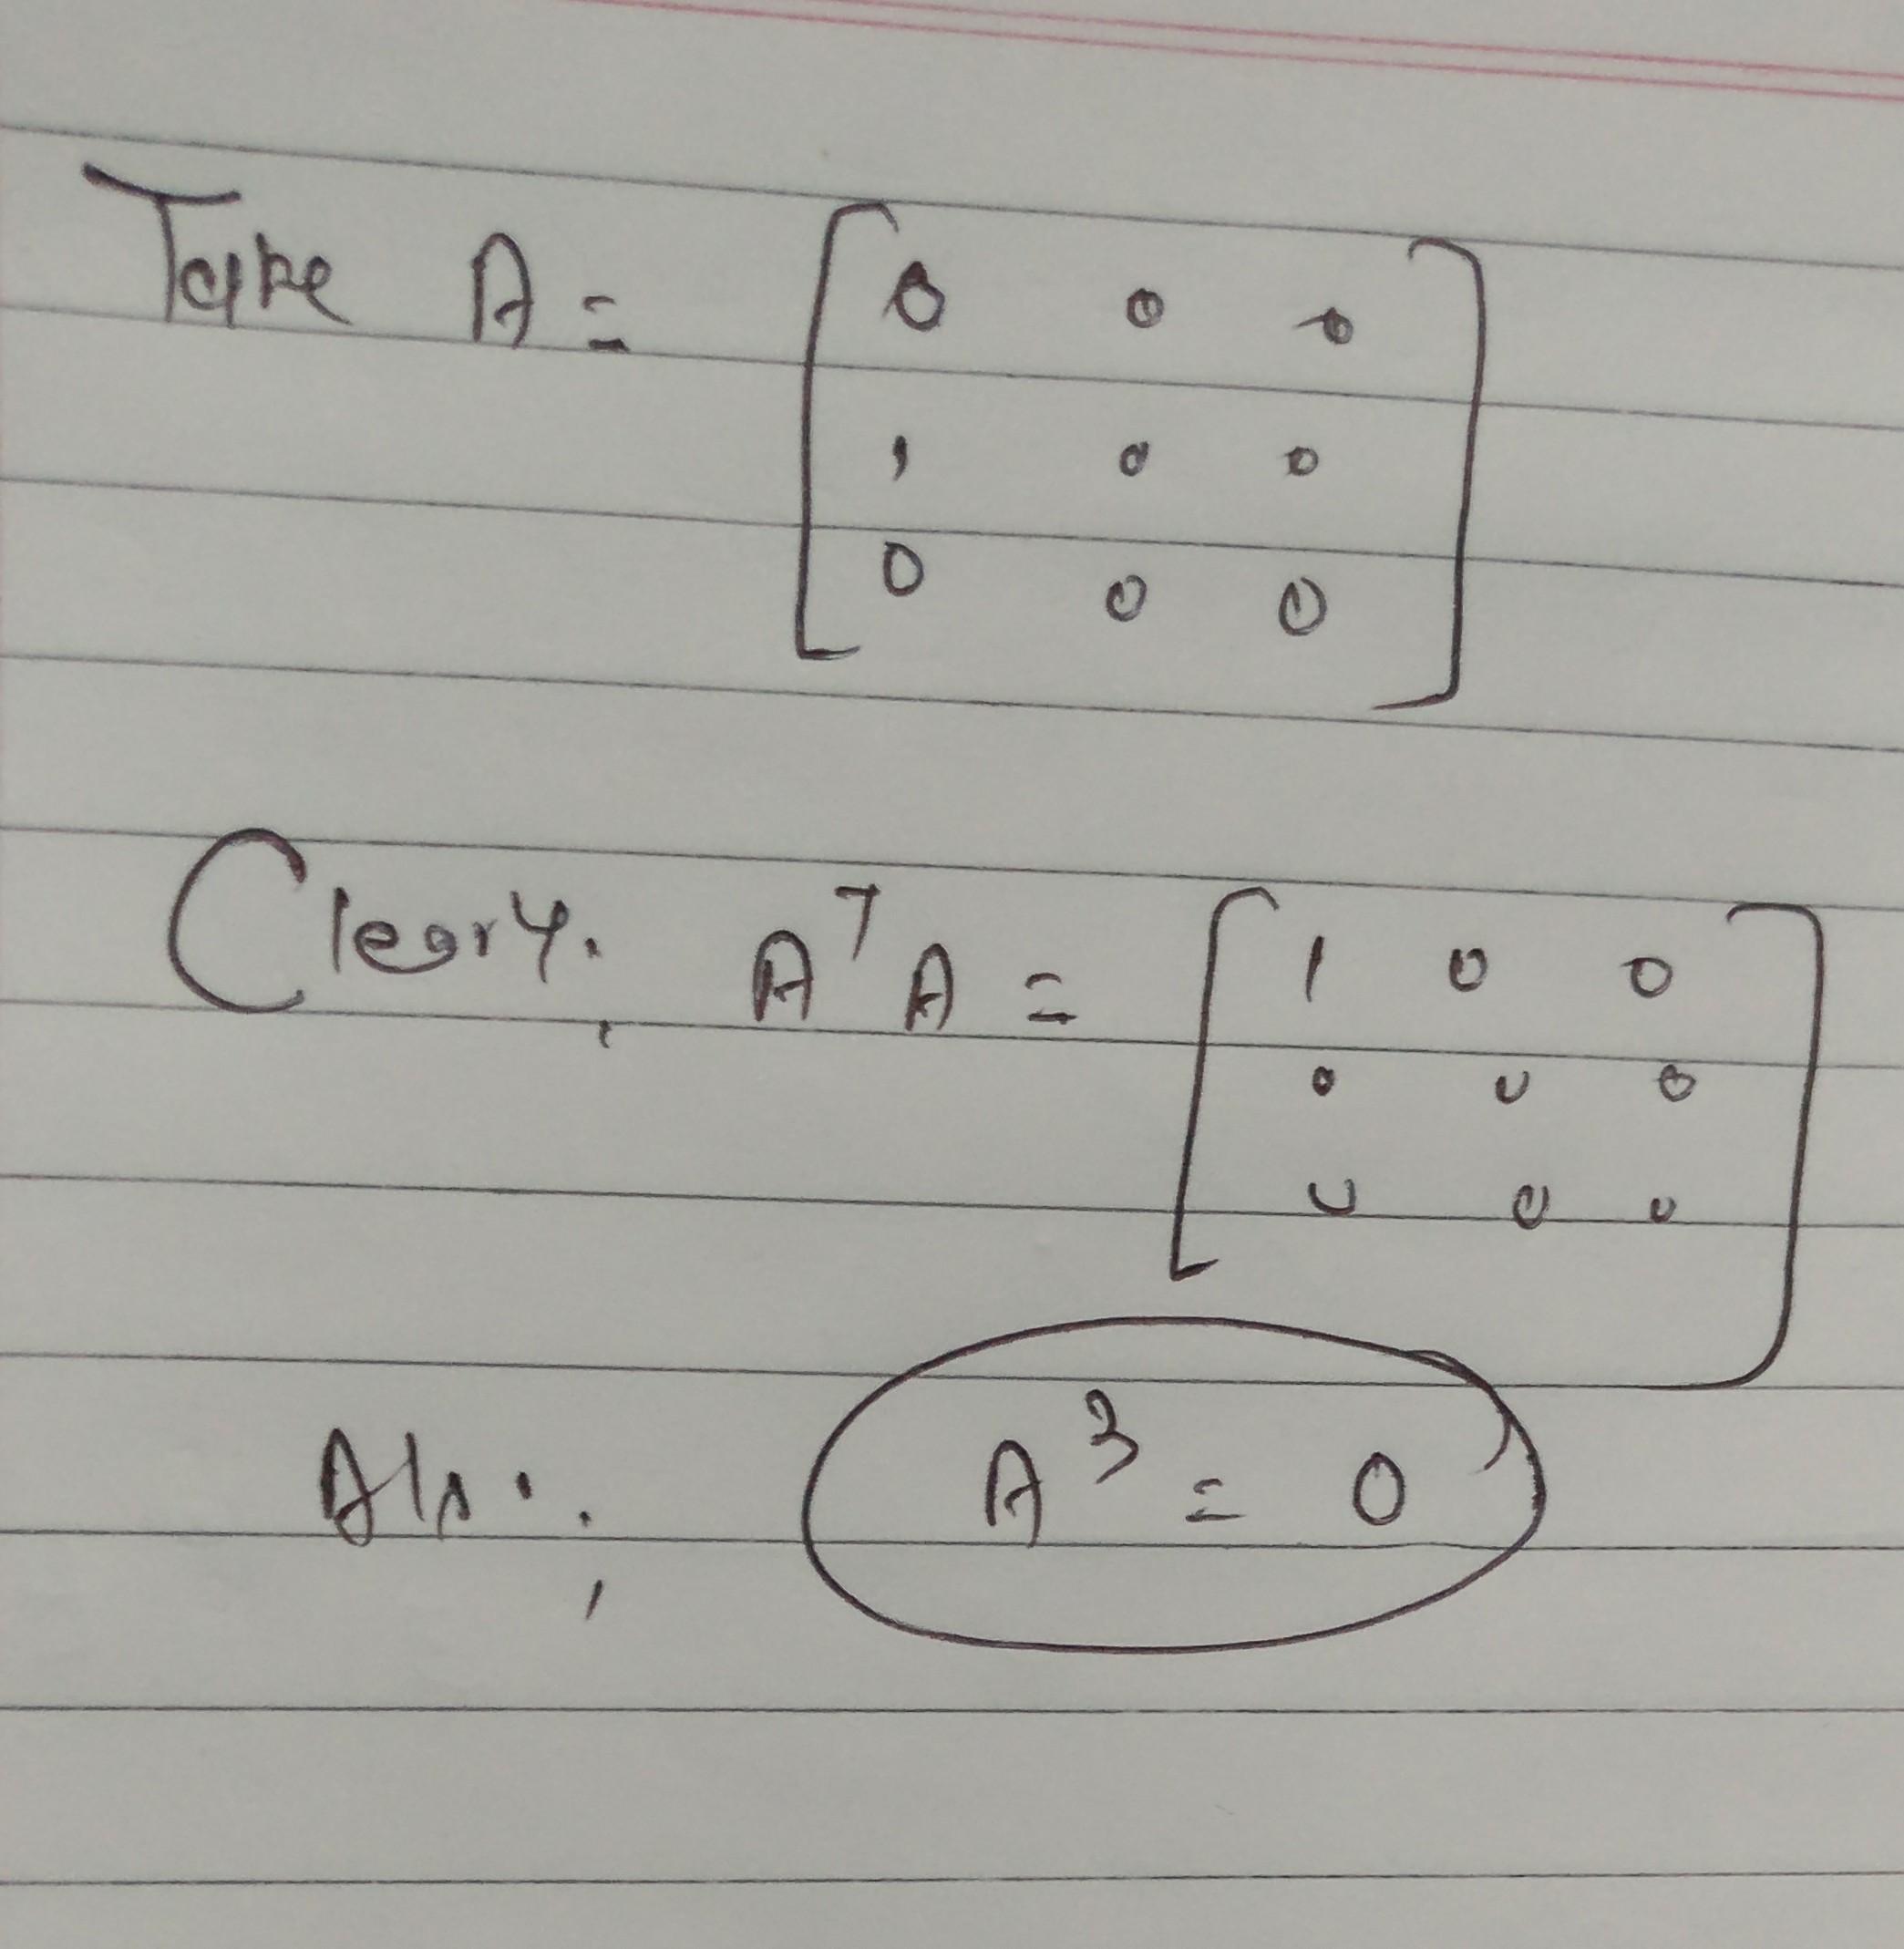 Take A = [ 0 0 0
1 0 0
0 0 0 ]
Clearly, AᵀA = [ 1 0 0
0 0 0
0 0 0 ]
Also, A³ = 0